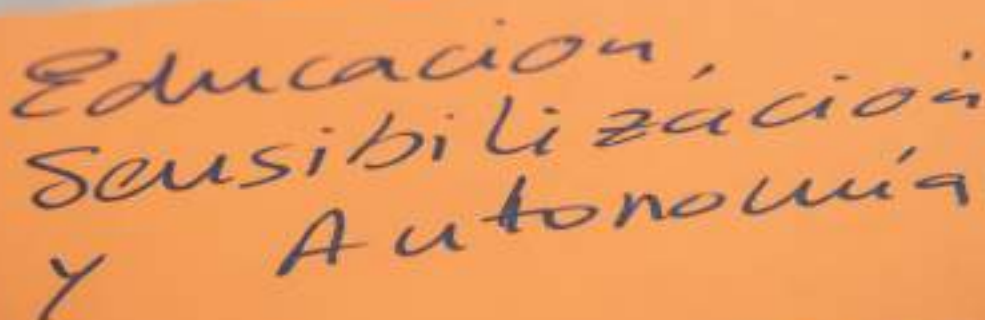 Educacion,
Sensibilización
y Autonomía